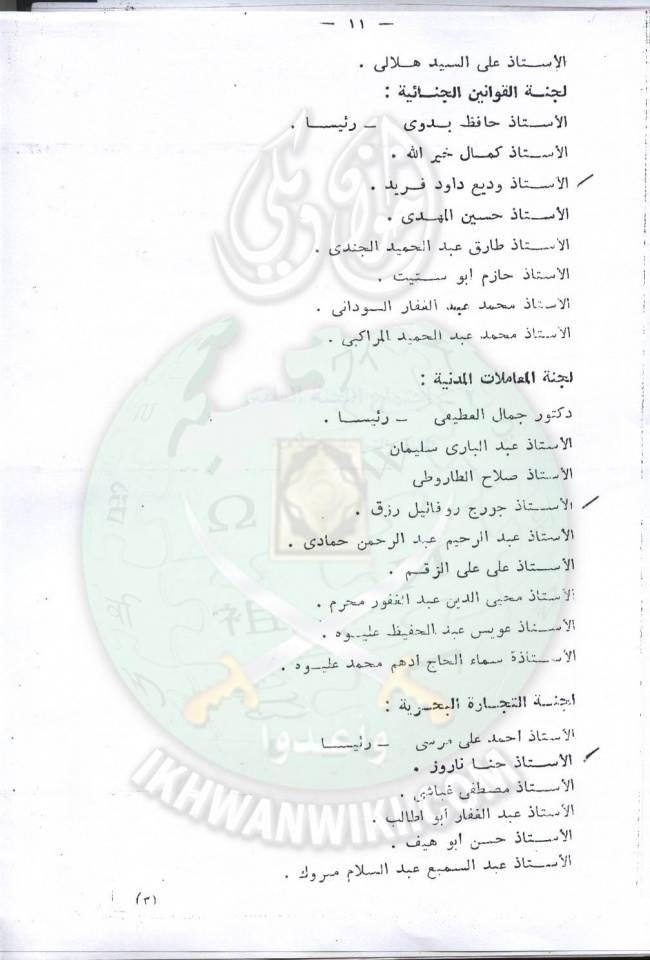 — ١١ —
الأستاذ على السيد هلالى .
لجنة القوانين الجنائية :
الأستاذ حافظ بدوى — رئيسا .
الأستاذ كمال خير الله .
الأستاذ وديع داود فريد .
الأستاذ حسين المهدى .
الأستاذ طارق عبد الحميد الجندى .
الاستاذ حازم ابو ستيت .
الاستاذ محمد عبد الغفار السودانى .
الأستاذ محمد عبد الحميد المراكبى .
لجنة المعاملات المدنية :
دكتور جمال العطيفى — رئيسا .
الأستاذ عبد البارى سليمان
الأستاذ صلاح الطاروطى
الأستاذ جورج روفائيل رزق .
الأستاذ عبد الرحيم عبد الرحمن حمادى .
الأستاذ على على الزقم .
الأستاذ محيى الدين عبد الغفور محرم .
الأستاذ عويس عبد الحفيظ عليوه .
الأستاذة سماء الحاج ادهم محمد عليوه .
لجنة التجارة البحرية :
الأستاذ احمد على مرسى — رئيسا
الأستاذ حنا ناروز .
الأستاذ مصطفى
الأستاذ عبد الغفار أبو طالب .
الأستاذ حسن ابو هيف .
الأستاذ عبد السميع عبد السلام مبروك .
(٣)
إخوان ويكي
وأعدوا
IKHWANWIKI.COM